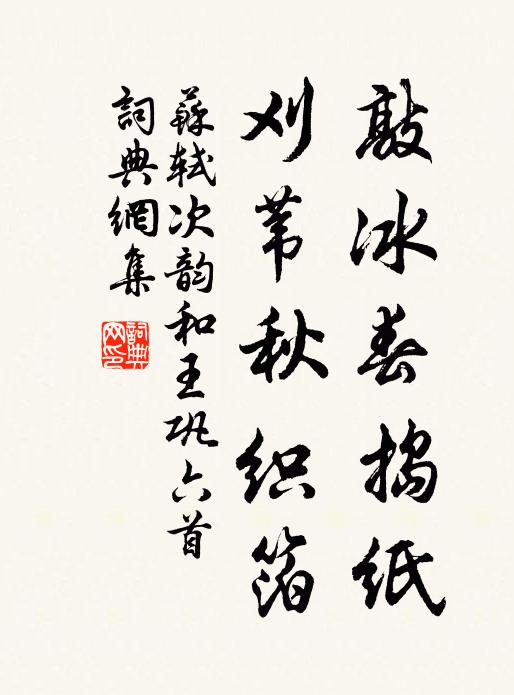 敲冰春搗紙
刈苇秋织箔
蘇軾次韵和王巩六首
詞典網集
詞典网印